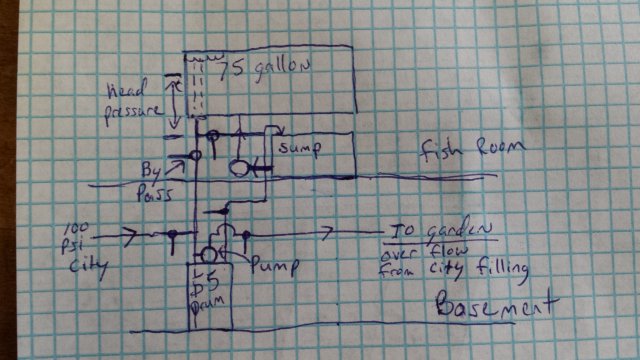 75 gallon
head
pressure
Sump
Fish Room
By
Pass
100
Psi
City
To garden
over flow
from city filling
Pump
55
Drum
Basement